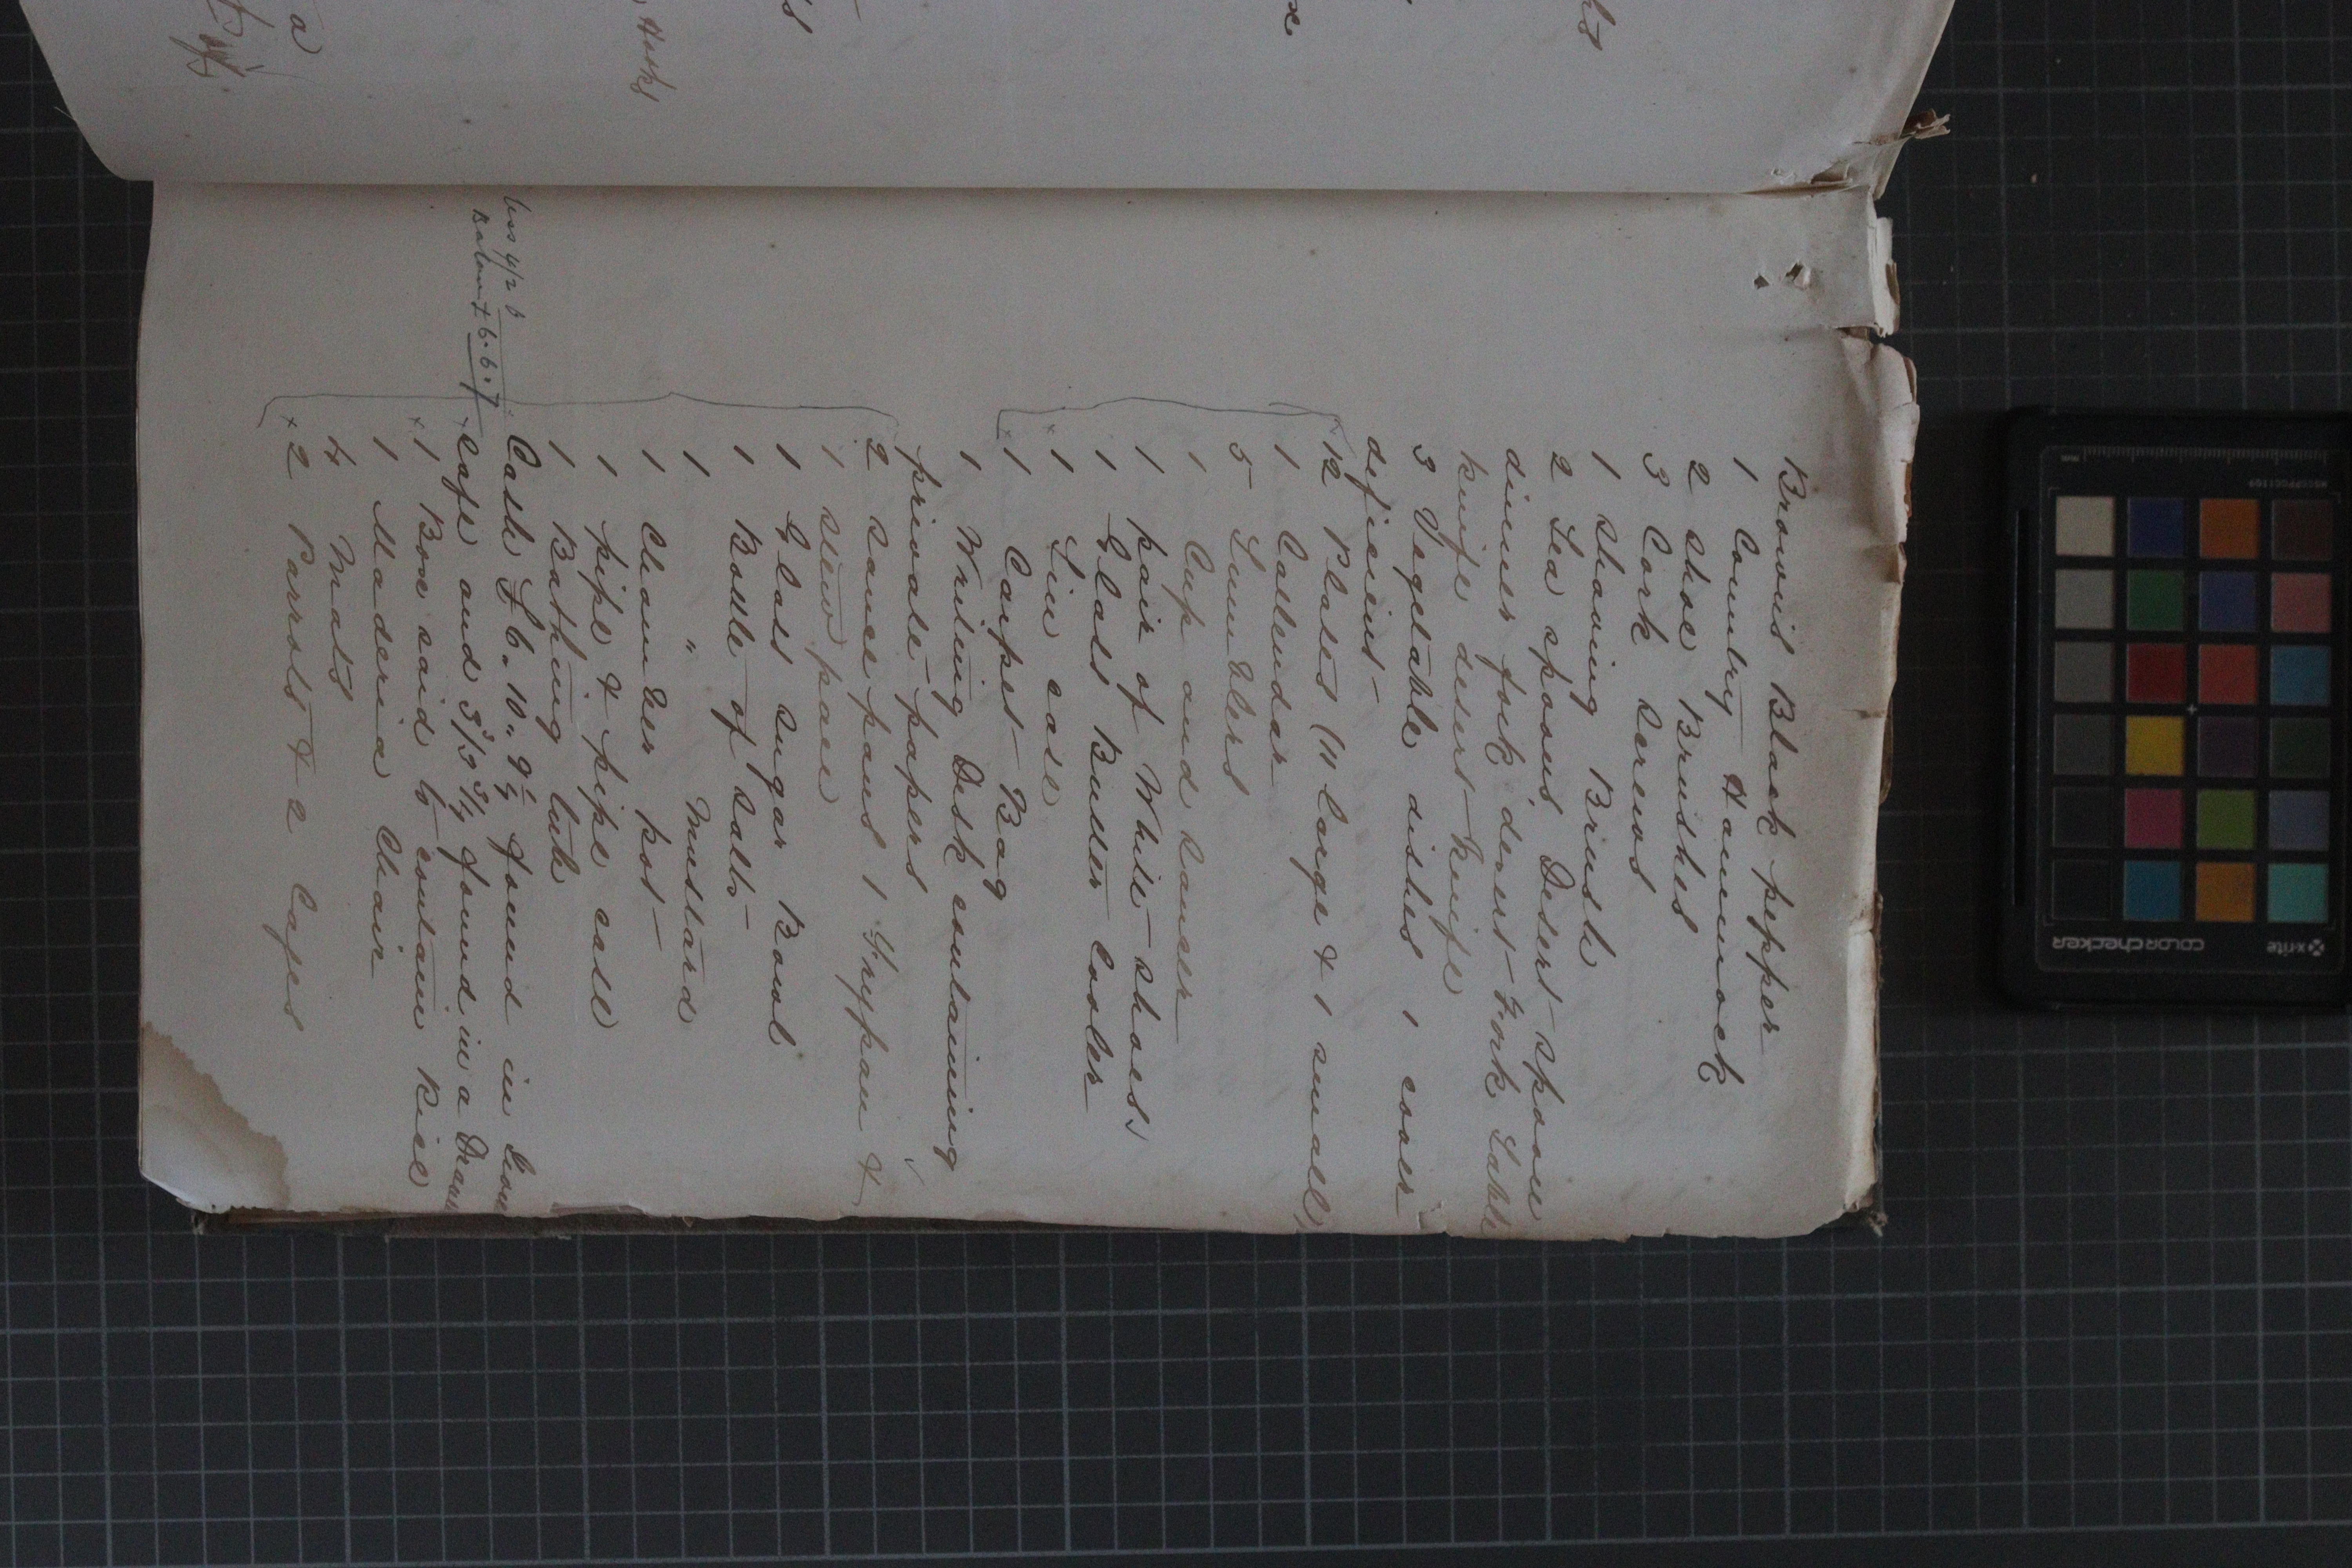 Brown's Black pepper
1 Country Hammock
2 shoe Brushes
3 Cork Screws
1 Shaving Brush
2 Tea spoons, Desert-spoon
dinner fork, desert-Fork Table
knife desert-knife
3 Vegetable dishes 1 cover
deficient-
12 Plates (11 large & 1 small)
1 Callendar
5 Tumblers
1 Cup and Saucer
1 pair of White-shoes,
1 Glass Butter Cooler
1 Tin case
1 Carpet-Bag
1 Writing Desk containing
private-papers
2 Sauce pans 1 Frypan &
1 stew pan
1 Glass Sugar Bowl
1 Bottle of Salts-
1 " Mustard
1 Chamber pot-
1 pipe & pipe case
1 Bathing tub
Cash £6.10.9¼ found in Iron
less 4/2
safe and 3s/3¾ found in a Draw
Balance £6.6.7
1 Box said to contain Rice
1 Maderia Chair
4 Mats
2 Parrots & 2 Cages